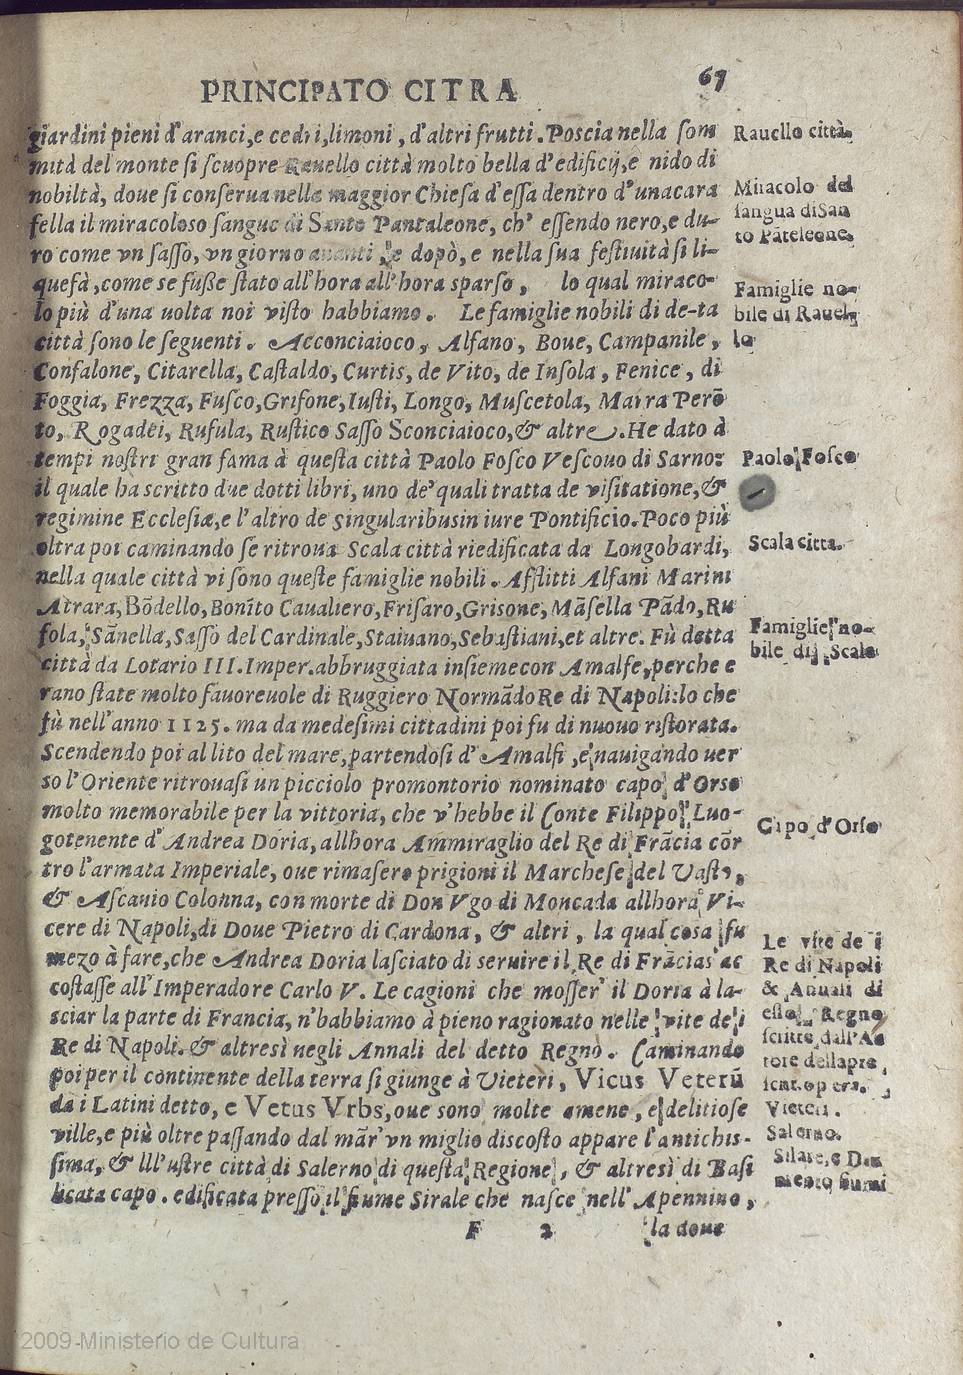 PRINCIPATO CITRA 67
giardini pieni d'aranci,e cedri,limoni, d'altri frutti. Poscia nella som
mità del monte si scuopre Rauello città molto bella d'edificij,e nido di
nobiltà, doue si conserua nella maggior Chiesa d'essa dentro d'unacara
fella il miracoloso sangue di Santo Pantaleone, ch' essendo nero,e du-
ro come vn sasso, vn giorno auanti, e dopò, e nella sua festiuità si li-
quefà, come se fuße stato all'hora all'hora sparso, lo qual miraco-
lo più d'una uolta noi visto habbiamo. Le famiglie nobili di de-ta
città sono le seguenti. Acconciaioco, Alfano, Boue, Campanile,
Confalone, Citarella, Castaldo, Curtis, de Vito, de Insola, Fenice, di
Foggia, Frezza, Fusco,Grifone,Iusti, Longo, Muscetola, Marra Perō
to, Rogadei, Rufula, Rustico Sasso Sconciaioco,& altre. He dato à
tempi nostri gran fama à questa città Paolo Fosco Vescouo di Sarno:
il quale ha scritto due dotti libri, uno de' quali tratta de visitatione, &
regimine Ecclesiæ,e l'altro de singularibusin iure Pontificio. Poco più
oltra poi caminando se ritroua Scala città riedificata da Longobardi,
nella quale città vi sono queste famiglie nobili. Afflitti Alfani Marini
Atrara, Bōdello, Bonīto Caualiero, Frisaro,Grisone, Māsella Pādo, Ru
fola, Sānella, Sasso del Cardinale, Staiuano, Sebastiani,et altre. Fù detta
città da Lotario III. Imper. abbruggiata insiemecon Amalfe,perche e
rano state molto fauoreuole di Ruggiero NormādoRe di Napoli:lo che
fù nell'anno 1125. ma da medesimi cittadini poi fu di nuouo ristorata.
Scendendo poi al lito del mare, partendosi d' Amalfi, e nauigando uer
so l'Oriente ritrouasi un picciolo promontorio nominato capo d'Orso
molto memorabile per la vittoria, che v'hebbe il Conte Filippo Luo-
gotenente d' Andrea Doria, allhora Ammiraglio del Re di Frācia cōr
tro l'armata Imperiale, oue rimasero prigioni il Marchese del Vasto,
& Ascanio Colonna, con morte di Don Vgo di Moncada allhora Vi-
cere di Napoli,di Doue Pietro di Cardona, & altri, la qual cosa fu
mezo à fare,che Andrea Doria lasciato di seruire il Re di Frācias' ac
costasse all'Imperadore Carlo V. Le cagioni che mosser' il Doria à la-
sciar la parte di Francia, n'habbiamo à pieno ragionato nelle vite de i
Re di Napoli. & altresì negli Annali del detto Regno. Caminando
poi per il continente della terra si giunge à Vieteri, Vicus Veterū
da i Latini detto, e Vetus Vrbs, oue sono molte amene, e delitiose
ville,e più oltre passando dal mār' vn miglio discosto appare l'antichis-
sima, & Ill'ustre città di Salerno di questa Regione, & altresì di Basi
licata capo. edificata presso il fiume Sirale che nasce nell' Apennino,
F 2 la doue
Rauello città.
Miracolo del
sangua diSan
to Pāteleone.
Famiglie no-
bile di Rauel
lo
Paolo Fosco
Scala citta.
Famiglie no-
bile di Scala
Capo d'Orso
Le vite de i
Re di Napoli
& Annali di
esso Regno
scritte dall'Au
tore dellapre,
sent. opera.
Vieteri.
Salerno.
Silare,e Da
mento fiumi
2009 Ministerio de Cultura